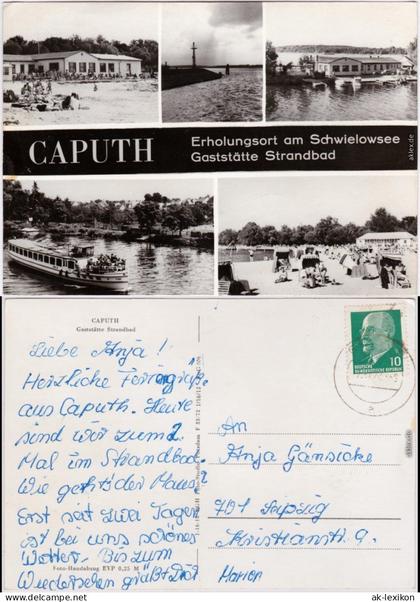 CAPUTH
Erholungsort am Schwielowsee
Gaststätte Strandbad
aklex.de
CAPUTH
Gaststätte Strandbad
Liebe Anja!
Herzliche Feriengrüße
aus Caputh. Heute
sind wir zum 2.
Mal im Strandbad.
Wie geht's der Maus?
Erst seit zwei Tagen
ist bei uns schönes
Wetter. Bis zum
Wiedersehen grüßt Dich
Marion
Foto-Handabzug EVP 0,25 M
10
DEUTSCHE
DEMOKRATISCHE REPUBLIK
An
Anja Gänsicke
701 Leipzig
Christianstr. 9
© ak-lexikon